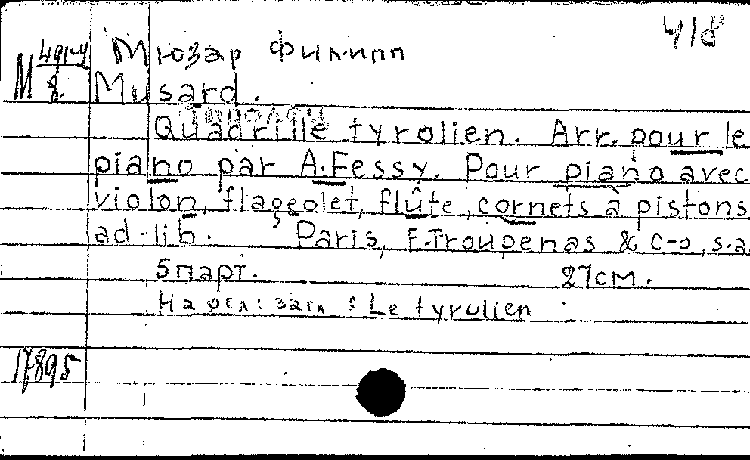 418
М 491-4 Мюзар Филипп
8 Musard.
Quadrille tyrolien. Arr. pour le
piano par A. Fessy. Pour piano avec
violon, flageolet, flûte, cornets à pistons
ad-lib. Paris, E. Troupenas & C-o, s.a
5 парт. 27 см.
загл : Le tyrulien
17895